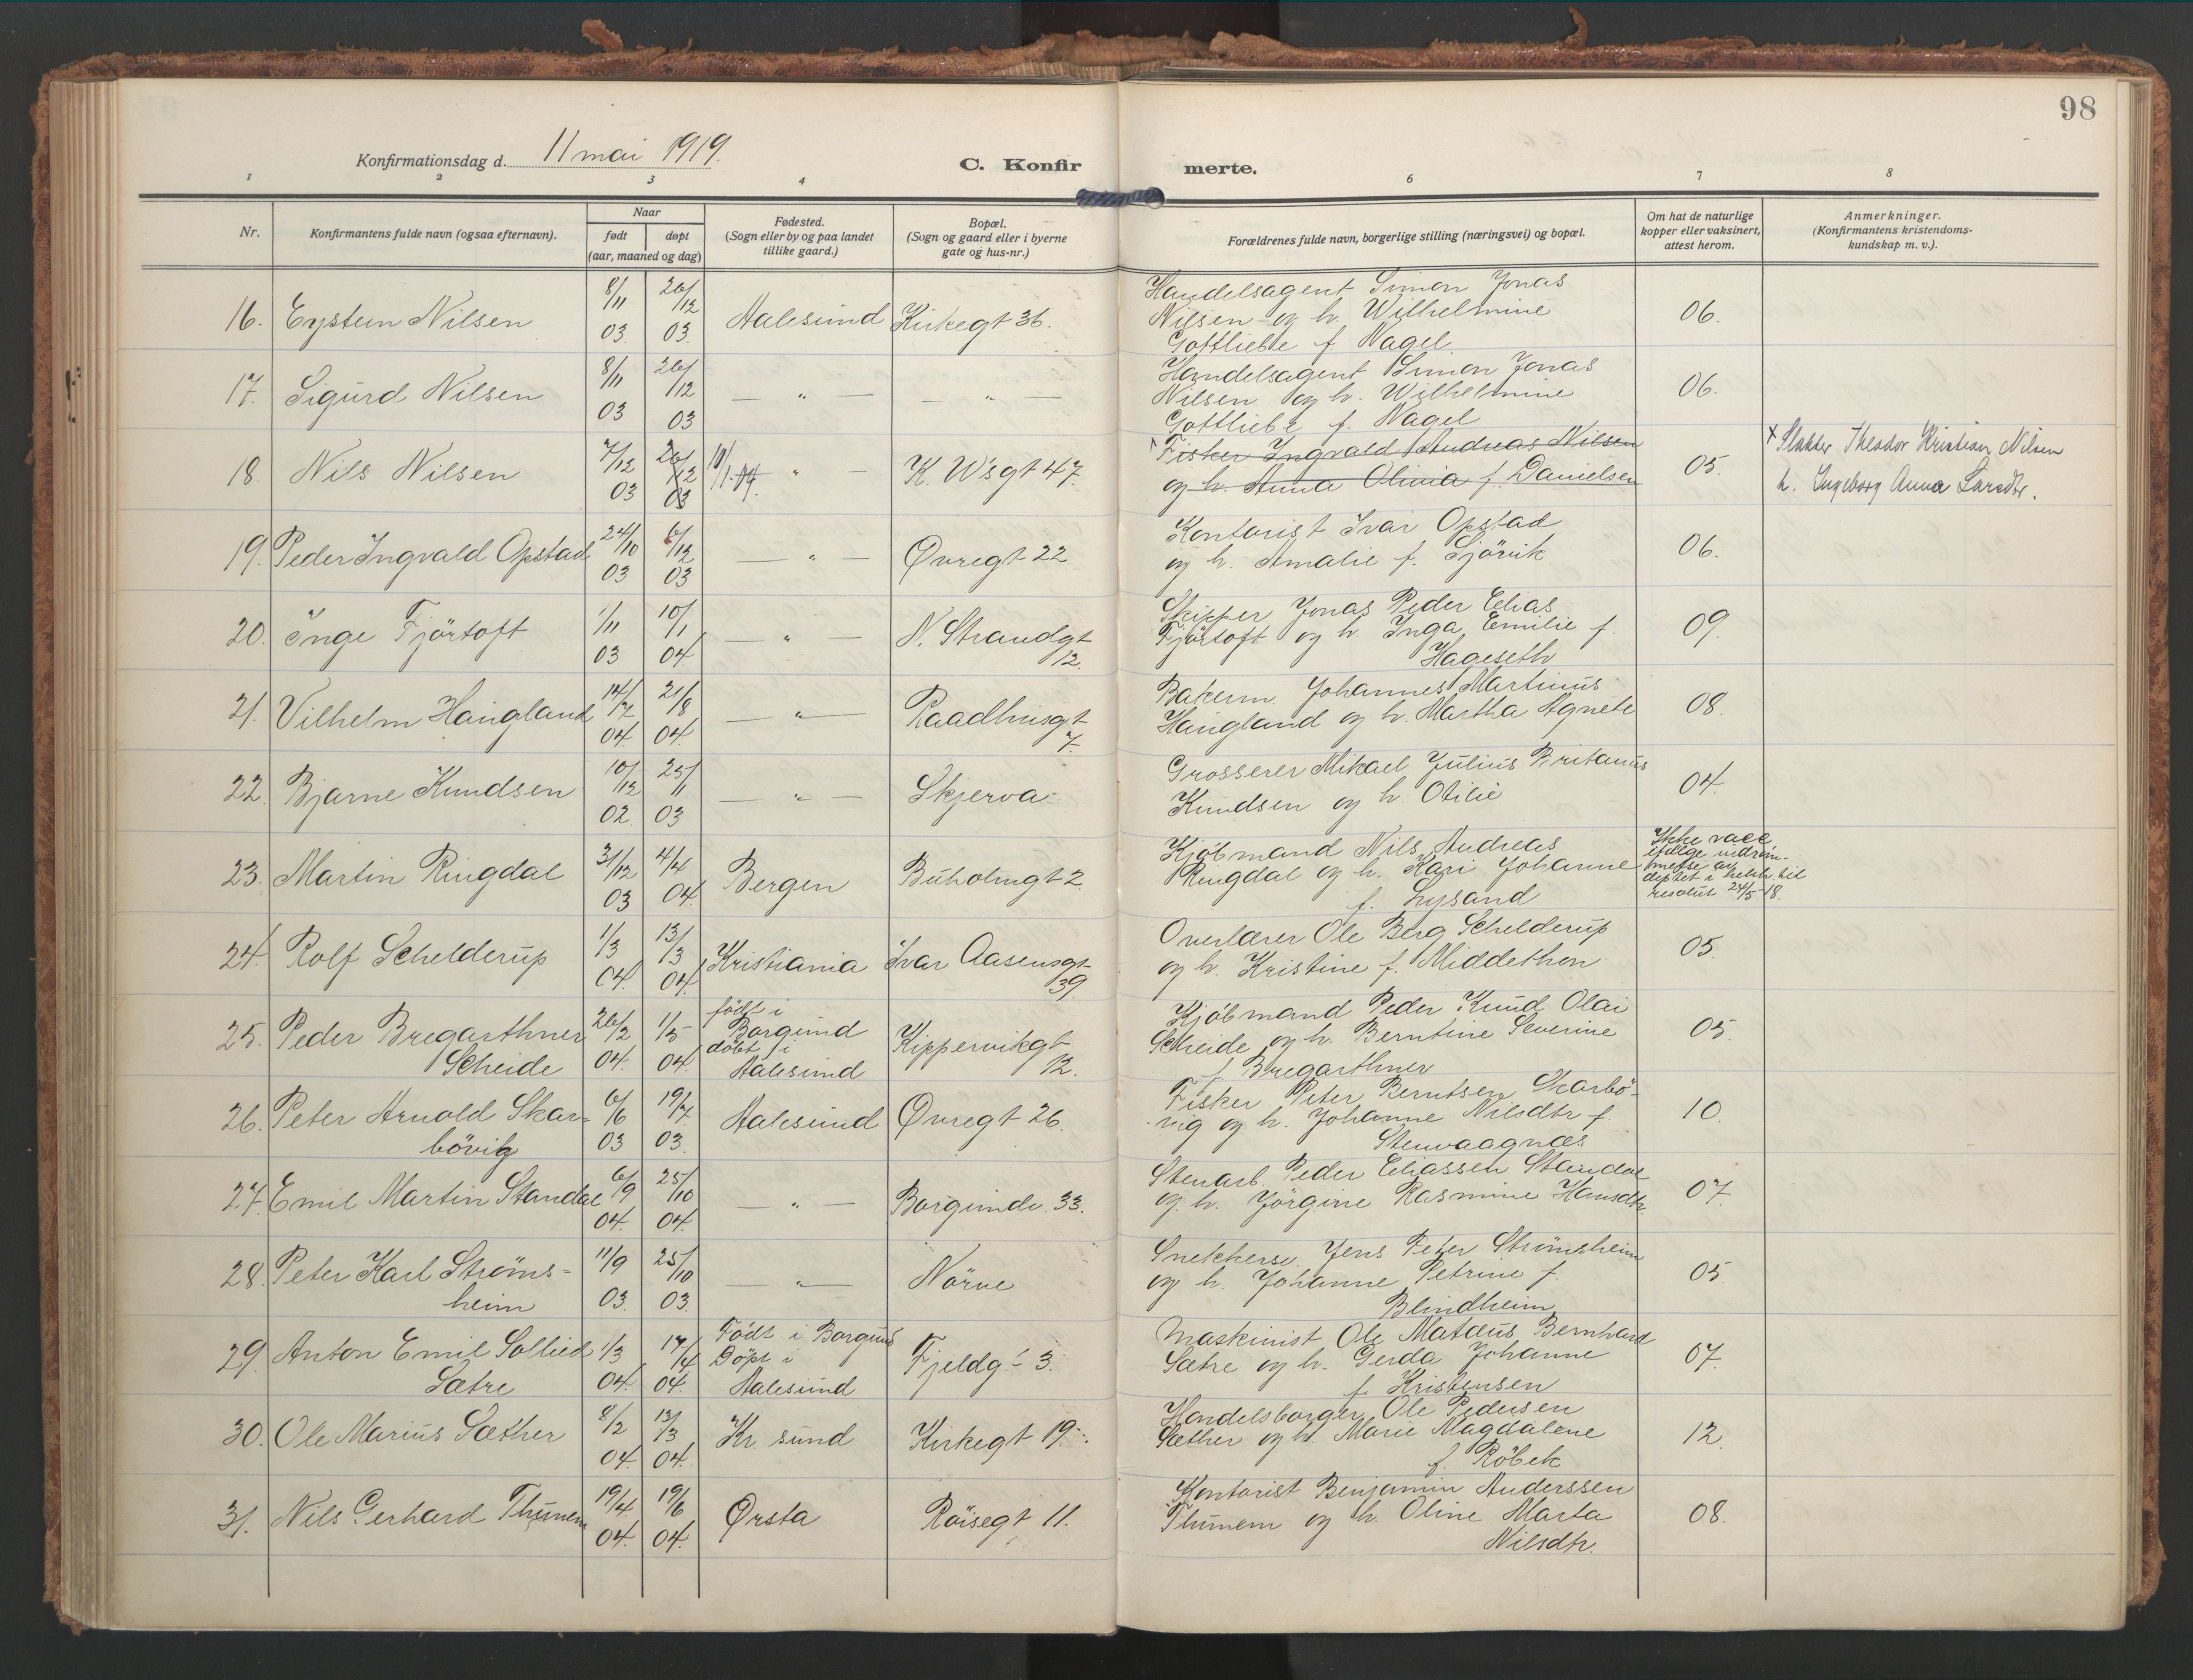 98
Konfirmationsdag d. 11 mai 1919.
C. Konfirmerte.
1 2 3 4 6 7 8
Nr.
Konfirmantens fulde navn (ogsaa efternavn).
Naar
født døpt
(aar, maaned og dag)
Fødested.
(Sogn eller by og paa landet
tillike gaard.)
Bopæl.
(Sogn og gaard eller i byerne
gate og hus-nr.)
Forældrenes fulde navn, borgerlige stilling (næringsvei) og bopæl.
Om hat de naturlige
kopper eller vaksinert,
attest herom.
Anmerkninger.
(Konfirmantens kristendoms-
kundskap m. v.).
16. Eystein Nilsen 8/11 03 26/12 03. Aalesund Kirkegt 36. Handelsagent Simon Jonas
Nilsen og h. Wilhelmine
Gottliebe f. Nagel 06.
17. Sigurd Nilsen 8/11 03 26/12 03 — " — — " — Handelsagent Simon Jonas
Nilsen og h. Wilhelmine
Gottliebe f. Nagel 06.
18. Nils Nilsen 7/12 03 26/12 03 10/1.04. " — K. W's gt 47. Fisker Ingvald Andreas Nilsen
og h. Anna Olivia f. Danielsen 05. x Slakter Theodor Kristian Nilsen
h. Ingeborg Anna Larsdtr.
19. Peder Ingvald Opstad 24/10 03 6/12 03 — " — Øvregt 22 Kontorist Ivar Opstad
og h. Amalie f. Sjörvik 06.
20. Inge Fjörtoft 1/11 03 10/1 04 — " — N. Strandgt
12. Skipper Jonas Peder Elias
Fjörtoft og h. Inga Emilie f.
Hageseth 09.
21. Vilhelm Haugland 14/7 04. 21/8 04. — " — Raadhusgt
7. Bakerm. Johannes Martinus
Haugland og h. Martha Agnete 08.
22. Bjarne Knudsen 10/12 02. 25/1 03 — " — Skjerva Grosserer Mikael Julius Britanus
Knudsen og h. Otilie 04.
23. Martin Ringdal 31/12 03 4/4 04. Bergen Buholmgt 2. Kjöbmand Nils Andreas
Ringdal og h. Kari Johanne
f. Lysand Ikke vacc.
ifølge indröm-
melse av
deptet i henh. til
resolut 24/5-18.
24. Rolf Schelderup 1/3 04. 13/3 04. Kristiania Ivar Aasensgt
39. Overlærer Ole Berg Schelderup
og h. Kristine f. Middethon 05.
25. Peder Bregarthner
Scheide 26/2 04. 1/5 04. født i
Borgund
döbt i
Aalesund Kippervikgt
12. Kjöbmand Peder Knud Olai
Scheide og h. Berntine Severine
f. Bregarthner 05.
26. Peter Arnold Skar-
bövig 6/6 03 19/7 03. Aalesund Øvregt 26. Fisker Peter Berntsen Skarbö-
vig og h. Johanne Nilsdtr f.
Stenvaagnæs 10.
27. Emil Martin Standal 6/9 04. 25/10 04. — " — Borgundv. 33. Stenarb. Peder Eliassen Standal
og. h. Jörgine Rasmine Hansdtr. 07.
28. Peter Karl Strøms-
heim 11/9 03. 25/10 03. — " — Nörve Snekkersv. Jens Peter Strömsheim
og h. Johanne Petrine f.
Blindheim 05.
29. Anton Emil Sollied
Sætre 1/3 04. 17/4 04. Född i Borgund
Döpt i
Aalesund Fjeldg.t 3. Maskinist Ole Matæus Bernhard
Sætre og h. Gerda Johanne
f. Kristensen 07.
30. Ole Marius Sæther 8/2 04. 13/3 04. Kr sund Kirkegt 19. Handelsborger Ole Pedersen
Sæther og h. Marie Magdalene
f. Röbek 12.
31. Nils Gerhard Thunem 19/4 04. 19/6 04. Ørsta Röisegt 11. Kontorist Benjamin Anderssen
Thunem og h. Oline Marta
Nilsdtr. 08.